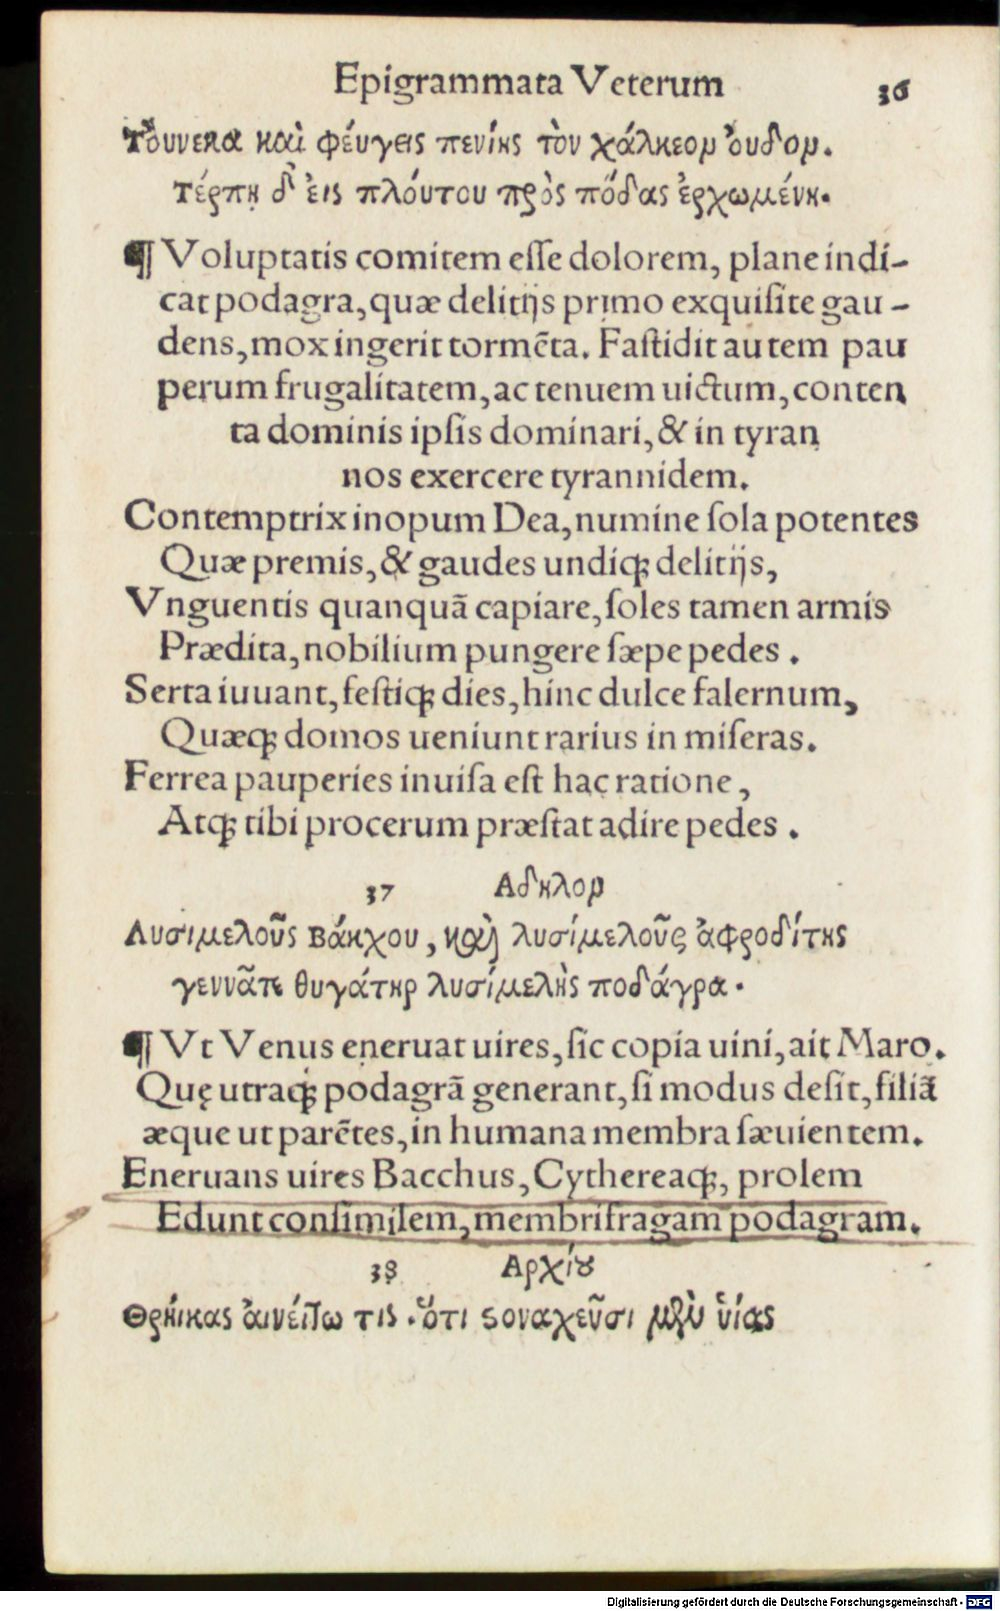 Epigrammata Veterum 36
Τοὔνεκα καὶ φέυγεις πενίης τὸν χάλκεον ὀυδον.
τέρπῃ δ᾽ ἐις πλόυτου πρὸς πόδας ἐρχωμένη.
¶ Voluptatis comitem eſſe dolorem, plane indi-
cat podagra, quæ delitijs primo exquiſite gau-
dens, mox ingerit tormẽta. Faſtidit autem pau
perum frugalitatem, ac tenuem uictum, conten
ta dominis ipſis dominari, & in tyran
nos exercere tyrannidem.
Contemptrix inopum Dea, numine ſola potentes
Quæ premis, & gaudes undiq; delitijs,
Vnguentis quanquã capiare, ſoles tamen armis
Prædita, nobilium pungere ſæpe pedes.
Serta iuuant, feſtiq; dies, hinc dulce falernum,
Quæq; domos ueniunt rarius in miſeras.
Ferrea pauperies inuiſa eſt hac ratione,
Atq; tibi procerum præſtat adire pedes.
37 Αδηλον
Λυσιμελοῦς βάκχου, καὶ λυσίμελοῦς ἀφροδίτης
γεννᾶται θυγάτηρ λυσίμελὴς ποδάγρα.
¶ Vt Venus eneruat uires, ſic copia uini, ait Maro.
Quę utraq; podagrã generant, ſi modus deſit, filiã
æque ut parẽtes, in humana membra ſæuientem.
Eneruans uires Bacchus, Cythereaq;, prolem
Edunt conſimilem, membrifragam podagram.
38 Αρχίου
Θρήικας ἀινέιτω τις. ὅτι στοναχεῦσι μὲν ὑίας
Digitalisierung gefördert durch die Deutsche Forschungsgemeinschaft - DFG